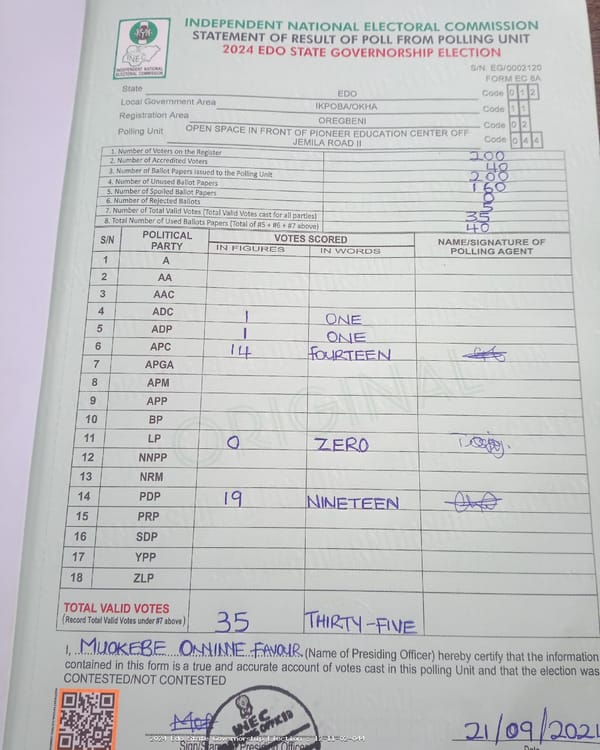 INDEPENDENT NATIONAL ELECTORAL COMMISSION
STATEMENT OF RESULT OF POLL FROM POLLING UNIT
2024 EDO STATE GOVERNORSHIP ELECTION
INEC
INDEPENDENT NATIONAL
ELECTORAL COMMISSION
S/N. EG/0002120
FORM EC 8A
State EDO Code 0 1 2
Local Government Area IKPOBA/OKHA Code 1 1
Registration Area OREGBENI Code 0 2
Polling Unit OPEN SPACE IN FRONT OF PIONEER EDUCATION CENTER OFF JEMILA ROAD II Code 0 4 4
1. Number of Voters on the Register 200
2. Number of Accredited Voters 40
3. Number of Ballot Papers issued to the Polling Unit 200
4. Number of Unused Ballot Papers 160
5. Number of Spoiled Ballot Papers 0
6. Number of Rejected Ballots 5
7. Number of Total Valid Votes (Total Valid Votes cast for all parties) 35
8. Total Number of Used Ballots Papers (Total of #5 + #6 + #7 above) 40
S/N POLITICAL PARTY VOTES SCORED NAME/SIGNATURE OF POLLING AGENT
IN FIGURES IN WORDS
1 A
2 AA
3 AAC
4 ADC 1 ONE
5 ADP 1 ONE
6 APC 14 FOURTEEN
7 APGA
8 APM
9 APP
10 BP
11 LP 0 ZERO
12 NNPP
13 NRM
14 PDP 19 NINETEEN
15 PRP
16 SDP
17 YPP
18 ZLP
ORIGINAL
TOTAL VALID VOTES
(Record Total Valid Votes under #7 above) 35 THIRTY-FIVE
I, MUOKEBE ONNINE FAVOUR (Name of Presiding Officer) hereby certify that the information
contained in this form is a true and accurate account of votes cast in this polling Unit and that the election was
CONTESTED/NOT CONTESTED
INEC
2024 Edo State Governorship Election
21/09/202
Date